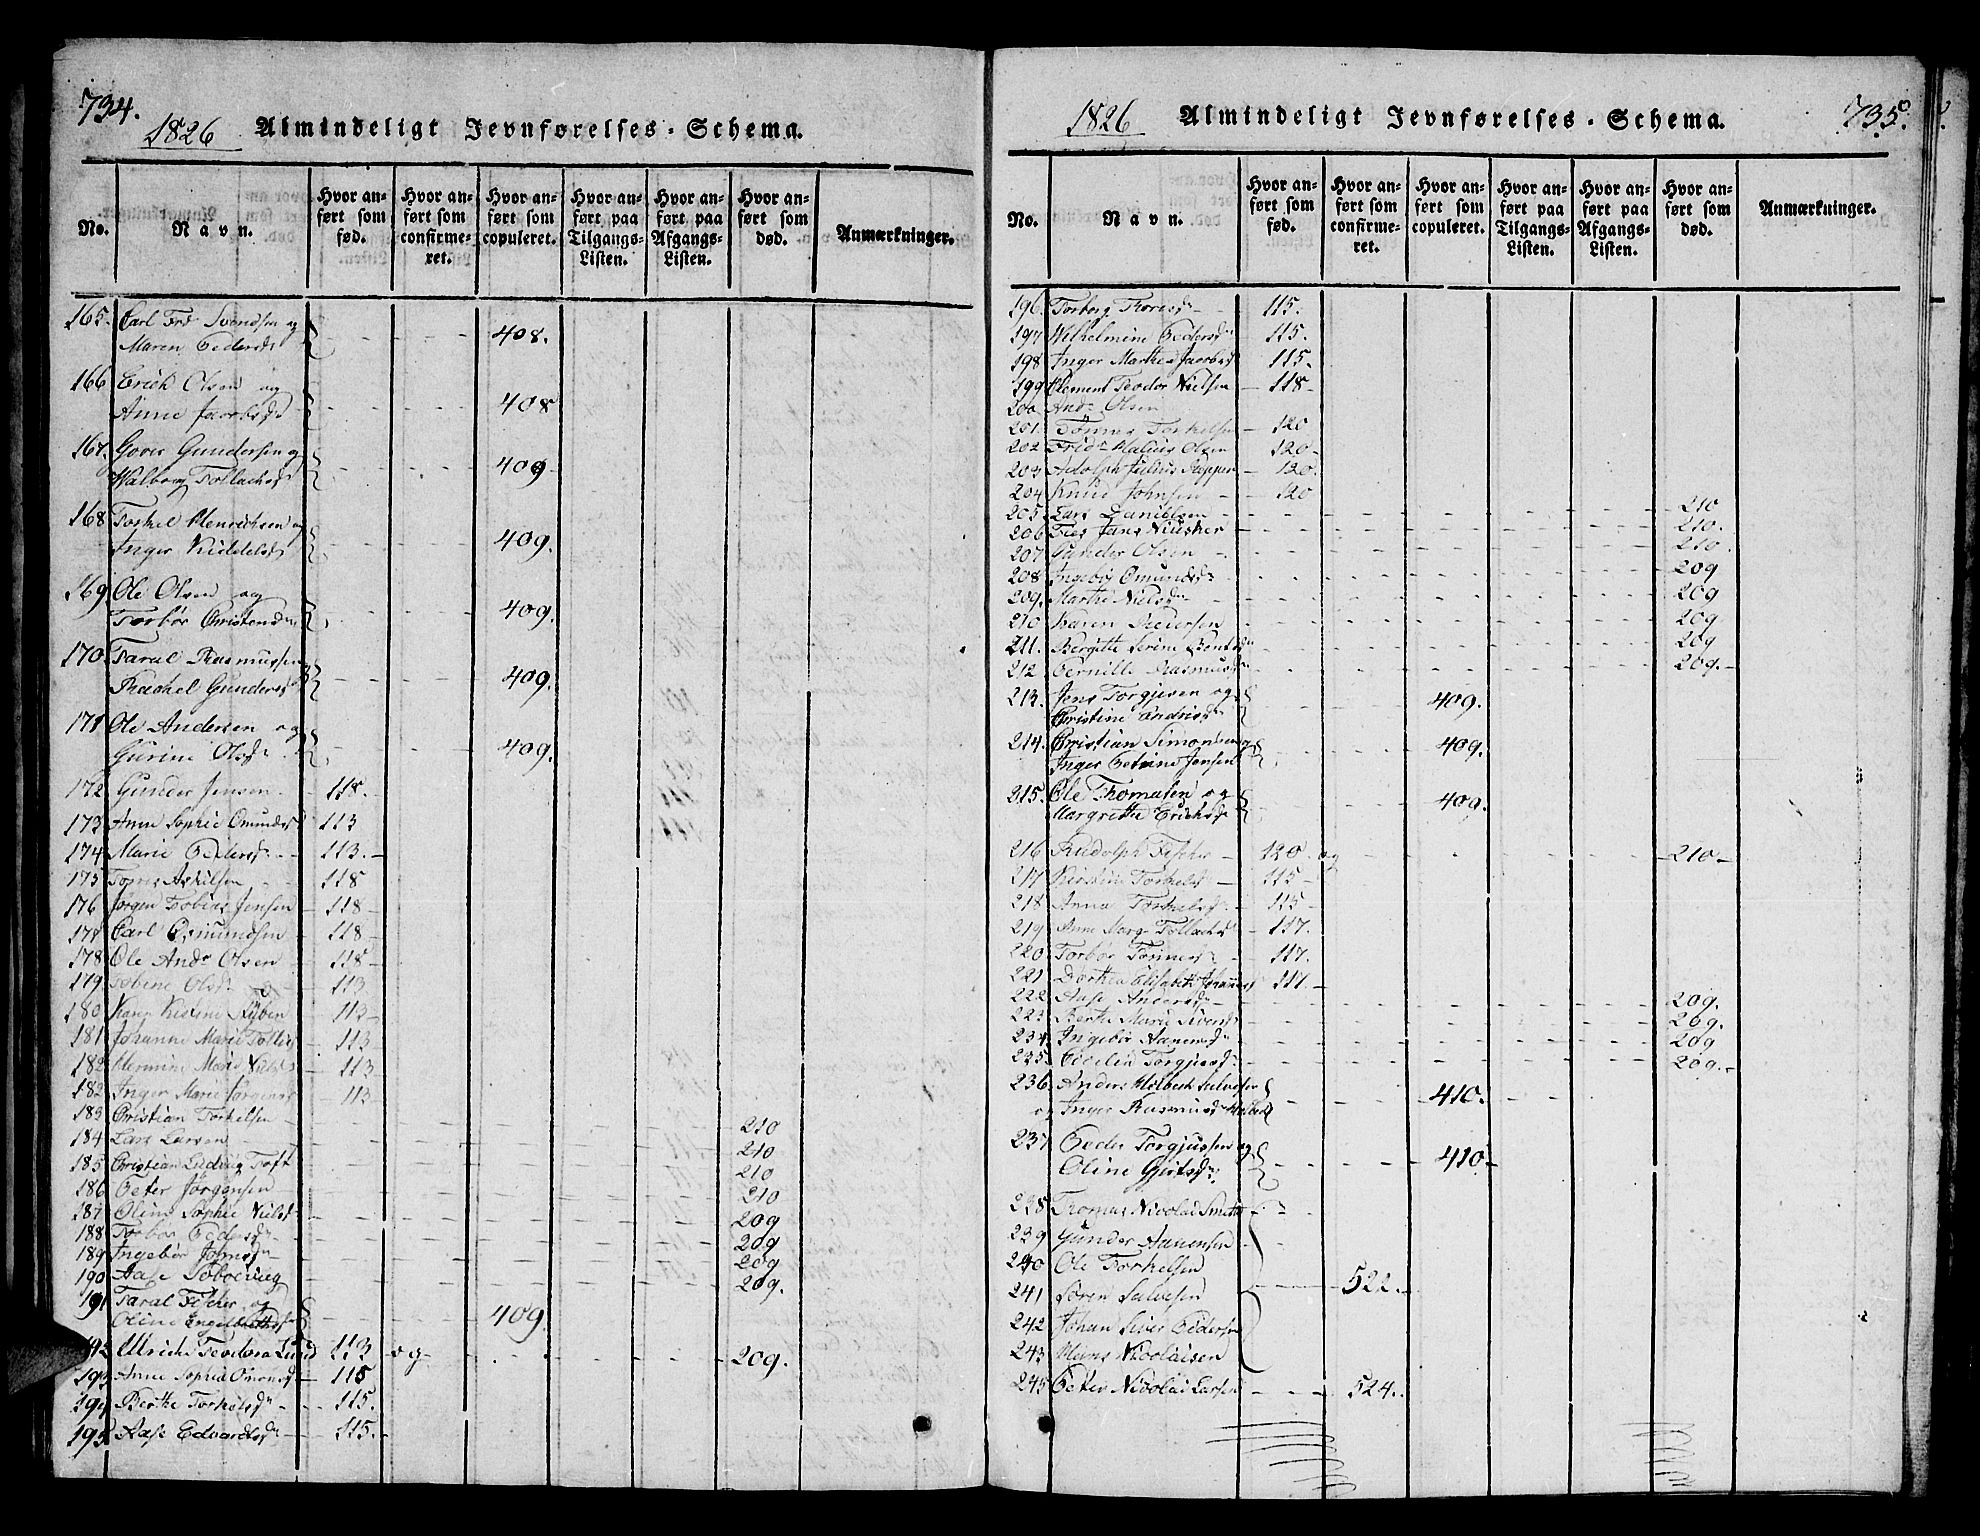 734.
1826 Almindeligt Jevnførelses-Schema.
No. Navn. Hvor anført som fød. Hvor anført som confirmeret. Hvor anført som copuleret. Hvor anført paa Tilgangs-Listen. Hvor anført paa Afgangs-Listen. Hvor anført som død. Anmærkninger.
165. Carl Frd Svendsen og
Maren Pedersd 408.
166 Erich Olsen og
Anne Jacobsd 408
167. Gover Gundersen og
Walborg Tollachsd 409
168 Torkel Henrichsen og
Inger Kiddelsd 409.
169 Ole Olsen og
Torbør Christensdn 409.
170. Taral Rasmussen
Rachel Gundersd 409.
171 Ole Andersen og
Gurine Olsdr 409.
172 Gunder Jensen 118.
173 Anne Sophie Omundsd 113
174 Marie Pedersd 113.
175 Tønnes Askilsen 118
176 Jørgen Tobias Jensen 118
177 Carl Osmundsen 118
178 Ole Andr Olsen 118
179 Tobine Olsdr 113
180 Karen Kistine Nyben 113
181 Johanne Marie Tollisd 113
182 Hermine Marie Nielsd 113
182 Inger Marie Jørgensd 113
183 Christian Torkelsen 210
184 Lars Larsen 210
185 Christian Ludvig Toft 210
186 Peter Jørgensen 210
187 Oline Sophie Nielsd 209
188 Torbør Pedersdr 209
189 Ingebør Johnsdr 209
190 Aase Tobsdr 209.
191 Taral Fischer og
Oline Engelbrethsd 409
192 Ulriche Teodora Lund 113 og 209.
193 Anne Sophie Omonsd 115
194 Berthe Torkelsdn 115.
195 Aase Edvardsdn 115.
1826 Almindeligt Jevnførelses-Schema. 735.
No. Navn. Hvor anført som fød. Hvor anført som confirmeret. Hvor anført som copuleret. Hvor anført paa Tilgangs-Listen. Hvor anført paa Afgangs-Listen. Hvor anført som død. Anmærkninger.
196. Torborg Toresdr 115.
197 Wilhelmine Pedersdr 115.
198 Inger Marthea Jacobsd 115.
199 Clement Teodor Nielsen 118
200 Andr Olsen
201. Tønnes Torkelsen 120
202 Fridr Malius Olsen 120
203 Adolph Julius 120.
204 Knud Johnsen 120
205. Lars Danielsen 210
206 Ties Jans Niusker 210.
207 Gunder Olsen 210.
208 Ingebør Omundsdr 209
209. Marthe Nielsdr 209
210 Karen Pedersen 209
211. Bergitte Serine Bentsdr 209
212 Pernille Rasmusdr 209.
213. Jens Torgjersen og
Christine Endresdr 409.
214. Christian Simonsen og
Inger Petrine Jensen 409.
215. Ole Thomasen og
Margrethe Erichsd 409.
216 Rudolph Fischer 120. og 210
217 Kirstine Torkelsd 115
218 Anna Torkelsdr 115
219 Anne Margr Tollachsd 117.
220 Torbør Tønnesdr 117.
221 Dorthea Elisabeth Johannesd 117.
222 Aase Andersdr 209.
223 Berthe Marie Siversd 209.
234. Ingebør Aanensdr 209
235. Cecelie Torgjersdr 209.
236 Anders Holbech Salvesen
og Inger Rasmusd Holbech 410.
237 Peder Torgjussen og
Oline Gjertsdr 410.
238 Thomas Nicolai Smith
239 Gunder Aanensen
240 Ole Torkelsen
241 Søren Salvesen 522.
242 Johan Siver Pedersen
243 Hans Nicolaisen
245 Peter Nicolai Larsen 524.